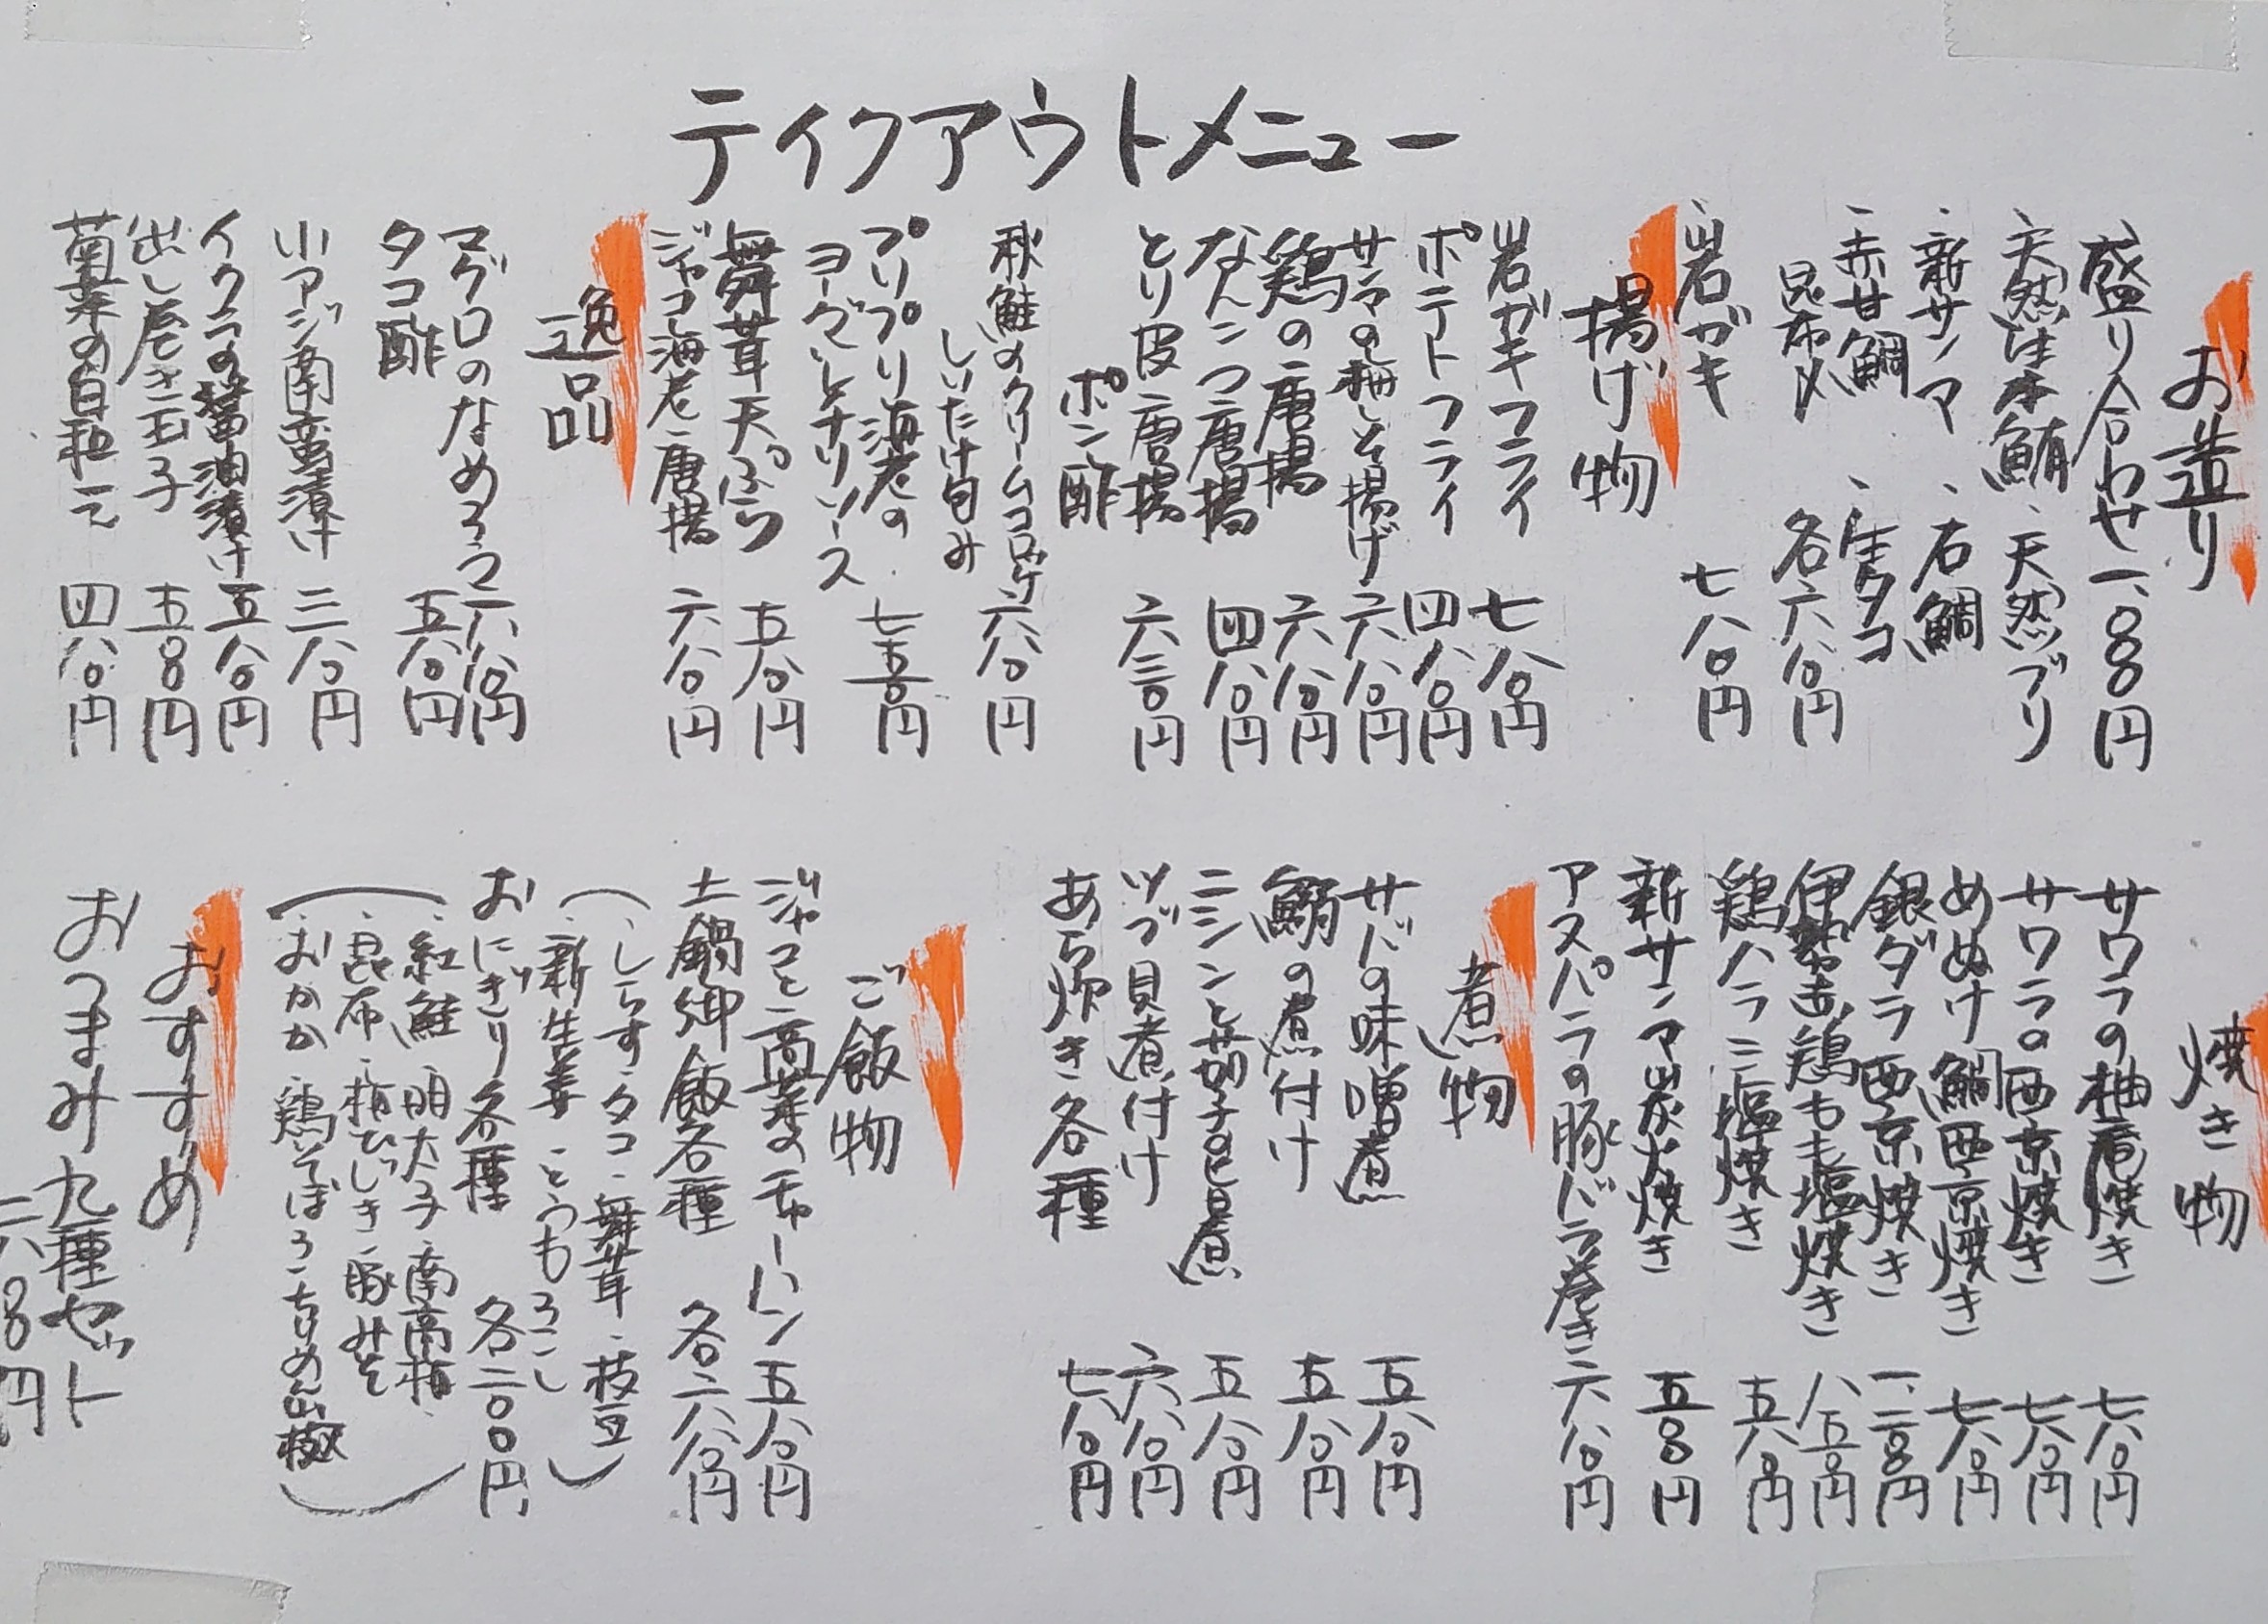 テイクアウトメニュー
お造り
盛り合わせ 一、〇〇〇円
、天然生本鮪 、天然ブリ
、新サンマ 、石鯛
、赤甘鯛 、生タコ
昆布〆 各六八〇円
、岩ガキ 七八〇円
揚げ物
岩ガキフライ 七八〇円
ポテトフライ 四八〇円
サンマの梅しそ揚げ 六八〇円
鶏の唐揚 六八〇円
なんこつ唐揚 四八〇円
とり皮唐揚 六三〇円
ポン酢
秋鮭のクリームコロッケ 六八〇円
しいたけ旨み
プリプリ海老の 七五〇円
ヨーグルトチリソース
舞茸天ぷら 五八〇円
ジャコ海老唐揚 六八〇円
逸品
マグロのなめろう 六八〇円
タコ酢 五八〇円
小アジ南蛮漬け 三八〇円
イクラの醤油漬け 五八〇円
出し巻き玉子 五〇〇円
菊菜の白和え 四八〇円
焼き物
サワラの柚庵焼き 七八〇円
サワラの西京焼き 七八〇円
めぬけ鯛西京焼き 七八〇円
銀ダラ西京焼き 一、二〇〇円
伊勢赤鶏もも塩焼き 八五〇円
鶏ハラミ塩焼き 五八〇円
新サンマ炭火焼き 五〇〇円
アスパラの豚バラ巻き 六八〇円
煮物
サバの味噌煮 五八〇円
鰯の煮付け 五八〇円
ニシンと茄子の旨煮 五八〇円
ツブ貝煮付け 六八〇円
あら炊き各種 七八〇円
ご飯物
ジャコと高菜のチャーハン 五八〇円
土鍋御飯各種 各六八〇円
（、しらす、タコ、舞茸、枝豆
、新生姜 とうもろこし）
おにぎり各種 各二〇〇円
（、紅鮭、明太子、南高梅、
、昆布、梅ひじき、豚みそ
、おかか、鶏そぼろ、ちりめん山椒）
おすすめ
おつまみ九種セット